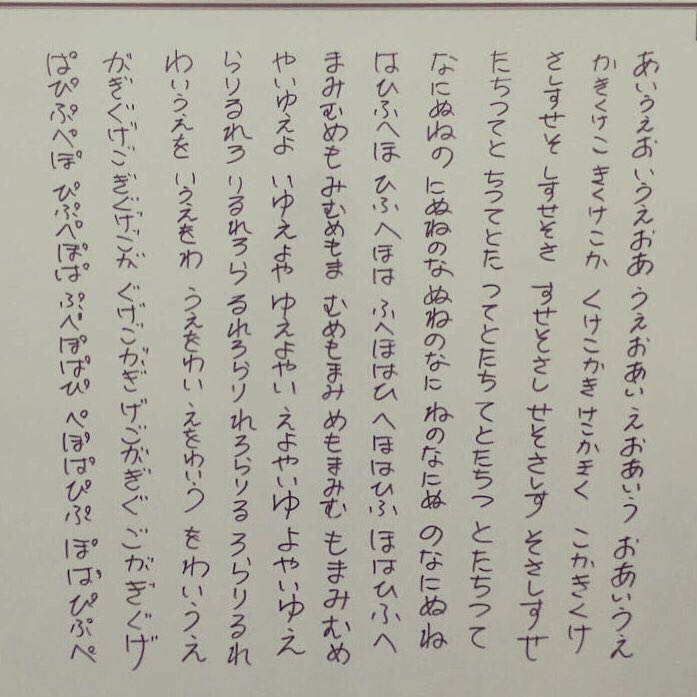 あいうえお いうえおあ うえおあい えおあいう おあいうえ
かきくけこ きくけこか くけこかき けこかきく こかきくけ
さしすせそ しすせそさ すせそさし せそさしす そさしすせ
たちつてと ちつてとた つてとたち てとたちつ とたちつて
なにぬねの にぬねのな ぬねのなに ねのなにぬ のなにぬね
はひふへほ ひふへほは ふへほはひ へほはひふ ほはひふへ
まみむめも みむめもま むめもまみ めもまみむ もまみむめ
やいゆえよ いゆえよや ゆえよやい えよやいゆ よやいゆえ
らりるれろ りるれろら るれろらり れろらりる ろらりるれ
わいうえを いうえをわ うえをわい えをわいう をわいうえ
がぎぐげご ぎぐげごが ぐげごがぎ げごがぎぐ ごがぎぐげ
ぱぴぷぺぽ ぴぷぺぽぱ ぷぺぽぱぴ ぺぽぱぴぷ ぽぱぴぷぺ